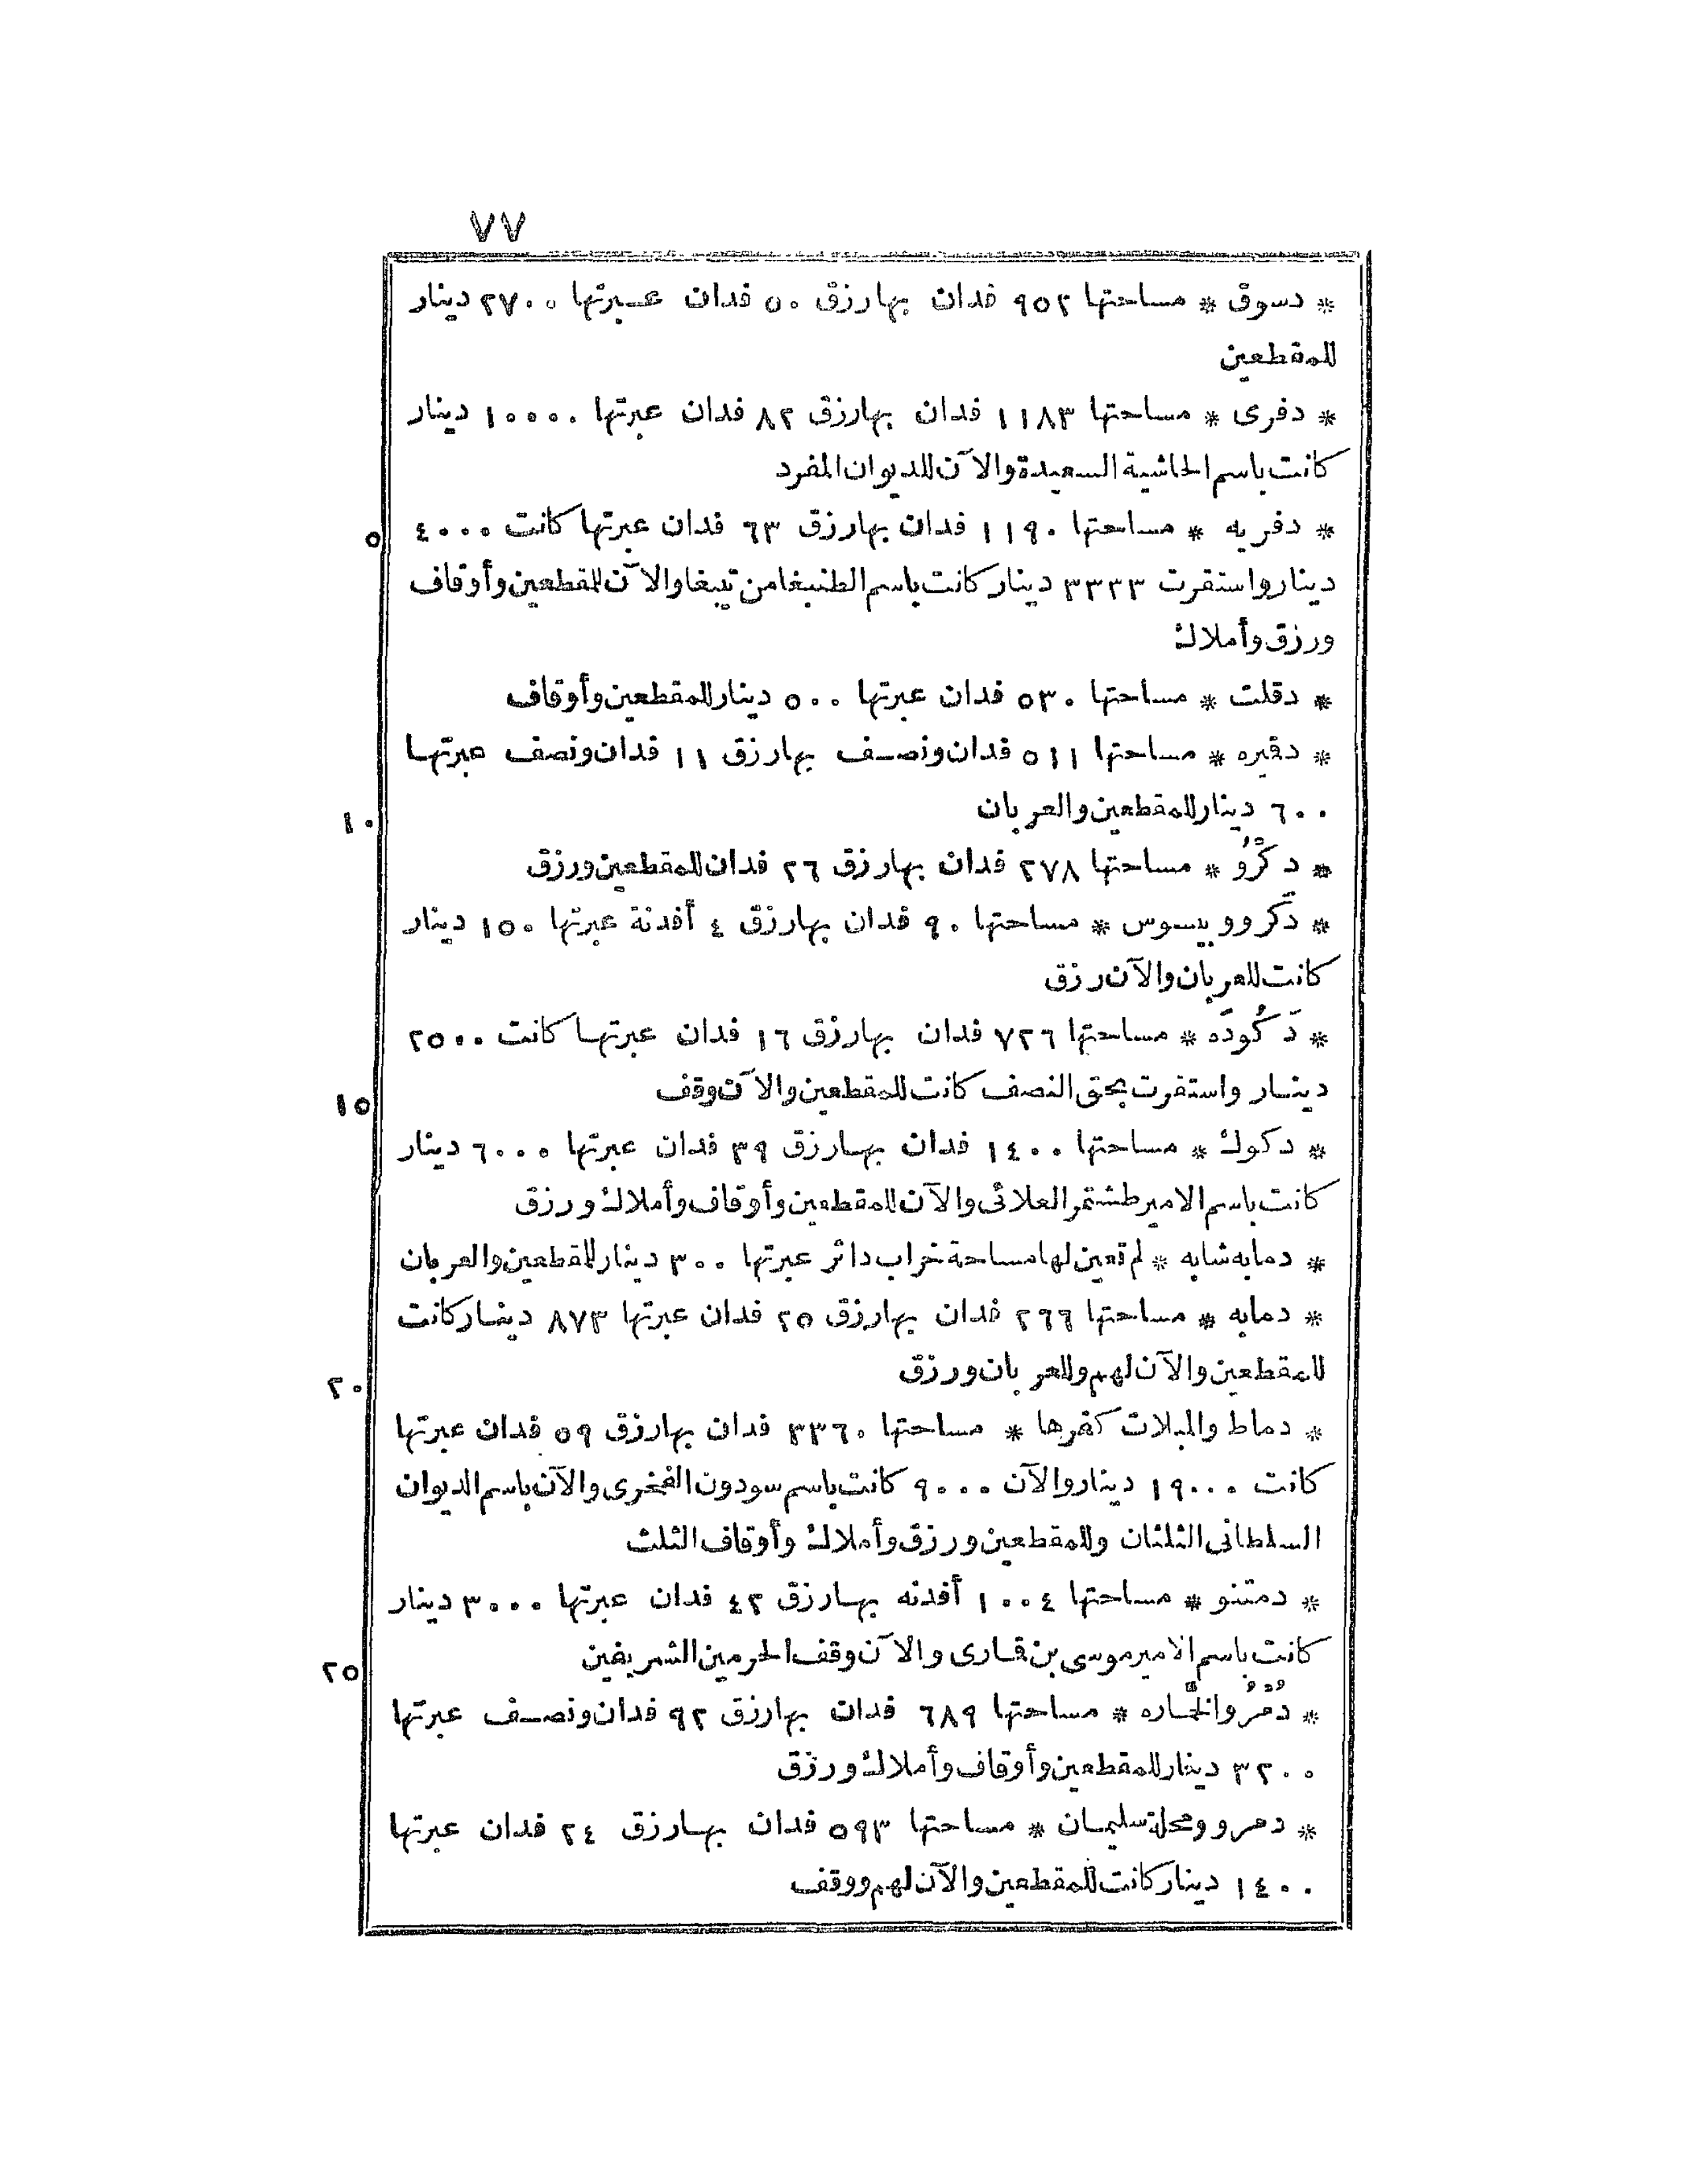 ٧٧
* دسوق * مساحتها ٩٥٢ فدان بها رزق ٥٠ فدان عبرتها ٢٧٠٠ دينار
للمقطعين
* دفرى * مساحتها ١١٨٣ فدان بها رزق ٨٢ فدان عبرتها ١٠٠٠٠ دينار
كانت باسم الحاشية السعيدة والآن للديوان المفرد
* دفريه * مساحتها ١١٩٠ فدان بها رزق ٦٣ فدان عبرتها كانت ٤٠٠٠
٥
دينار واستقرت ٣٣٣٣ دينار كانت باسم الطنبغا من تيبغا والآن للمقطعين وأوقاف
ورزق وأملاك
* دقلت * مساحتها ٥٣٠ فدان عبرتها ٥٠٠ دينار للمقطعين وأوقاف
* دقيره * مساحتها ٥١١ فدان ونصف بها رزق ١١ فدان ونصف عبرتها
٦٠٠ دينار للمقطعين والعربان
١٠
* دكرو * مساحتها ٢٧٨ فدان بها رزق ٢٦ فدان للمقطعين ورزق
* دكرو وبيسوس * مساحتها ٩٠ فدان بها رزق ٤ أفدنة عبرتها ١٥٠ دينار
كانت للعربان والآن رزق
* دَكُودَه * مساحتها ٧٢٦ فدان بها رزق ١٦ فدان عبرتها كانت ٢٥٠٠
دينار واستقرت بحق النصف كانت للمقطعين والآن وقف
١٥
* دكوك * مساحتها ١٤٠٠ فدان بها رزق ٣٩ فدان عبرتها ٦٠٠٠ دينار
كانت باسم الامير طشتمر العلائى والآن للمقطعين وأوقاف وأملاك ورزق
* دمابه شابه * لم تعين لها مساحة خراب داثر عبرتها ٣٠٠ دينار للمقطعين والعربان
* دمابه * مساحتها ٢٦٦ فدان بها رزق ٢٥ فدان عبرتها ٨٧٣ دينار كانت
للمقطعين والآن لهم وللعربان ورزق
٢٠
* دماط والمبلات كفرها * مساحتها ٣٣٦٠ فدان بها رزق ٥٩ فدان عبرتها
كانت ١٩٠٠٠ دينار والآن ٩٠٠٠ كانت باسم سودون الفخرى والآن باسم الديوان
السلطانى الثلثان وللمقطعين ورزق وأملاك وأوقاف الثلث
* دمتنو * مساحتها ١٠٠٤ أفدنه بها رزق ٤٢ فدان عبرتها ٣٠٠٠ دينار
كانت باسم الامير موسى بن قارى والآن وقف الحرمين الشريفين
٢٥
* دُمرُ والخمّاره * مساحتها ٦٨٩ فدان بها رزق ٩٢ فدان ونصف عبرتها
٣٢٠٠ دينار للمقطعين وأوقاف وأملاك ورزق
* دمرو ومحلة سليمان * مساحتها ٥٩٣ فدان بها رزق ٢٤ فدان عبرتها
١٤٠٠ دينار كانت للمقطعين والآن لهم ووقف